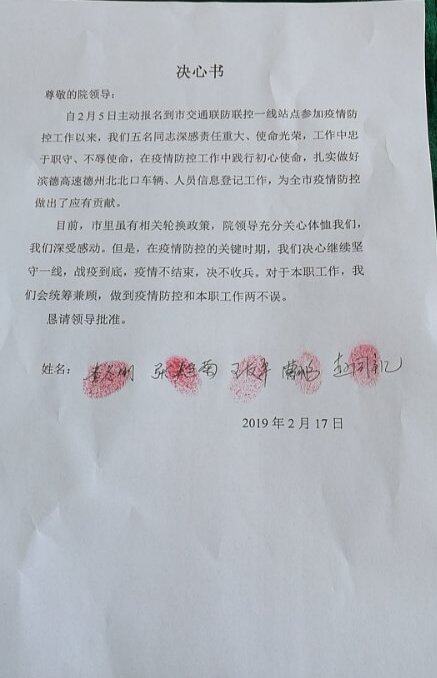 决心书
尊敬的院领导：
自2月5日主动报名到市交通联防联控一线站点参加疫情防
控工作以来，我们五名同志深感责任重大、使命光荣，工作中忠
于职守、不辱使命，在疫情防控工作中践行初心使命，扎实做好
滨德高速德州北北口车辆、人员信息登记工作，为全市疫情防控
做出了应有贡献。
目前，市里虽有相关轮换政策，院领导充分关心体恤我们，
我们深受感动。但是，在疫情防控的关键时期，我们决心继续坚
守一线，战疫到底，疫情不结束，决不收兵。对于本职工作，我
们会统筹兼顾，做到疫情防控和本职工作两不误。
恳请领导批准。
姓名：
2019年2月17日